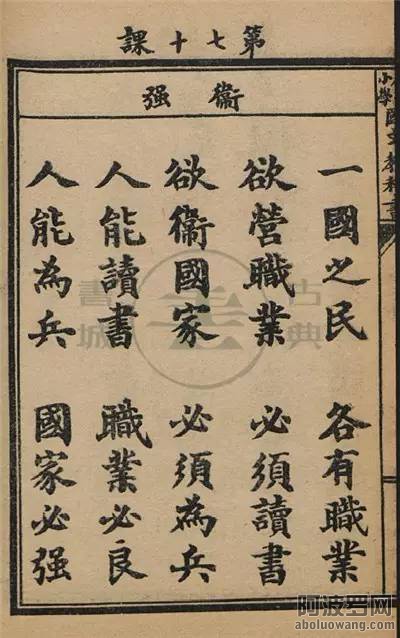 第七十課
小學國文教科書
衞强
一國之民 各有職業
欲營職業 必須讀書
欲衞國家 必須為兵
人能讀書 職業必良
人能為兵 國家必强
古典書城
阿波罗网
aboluowang.com